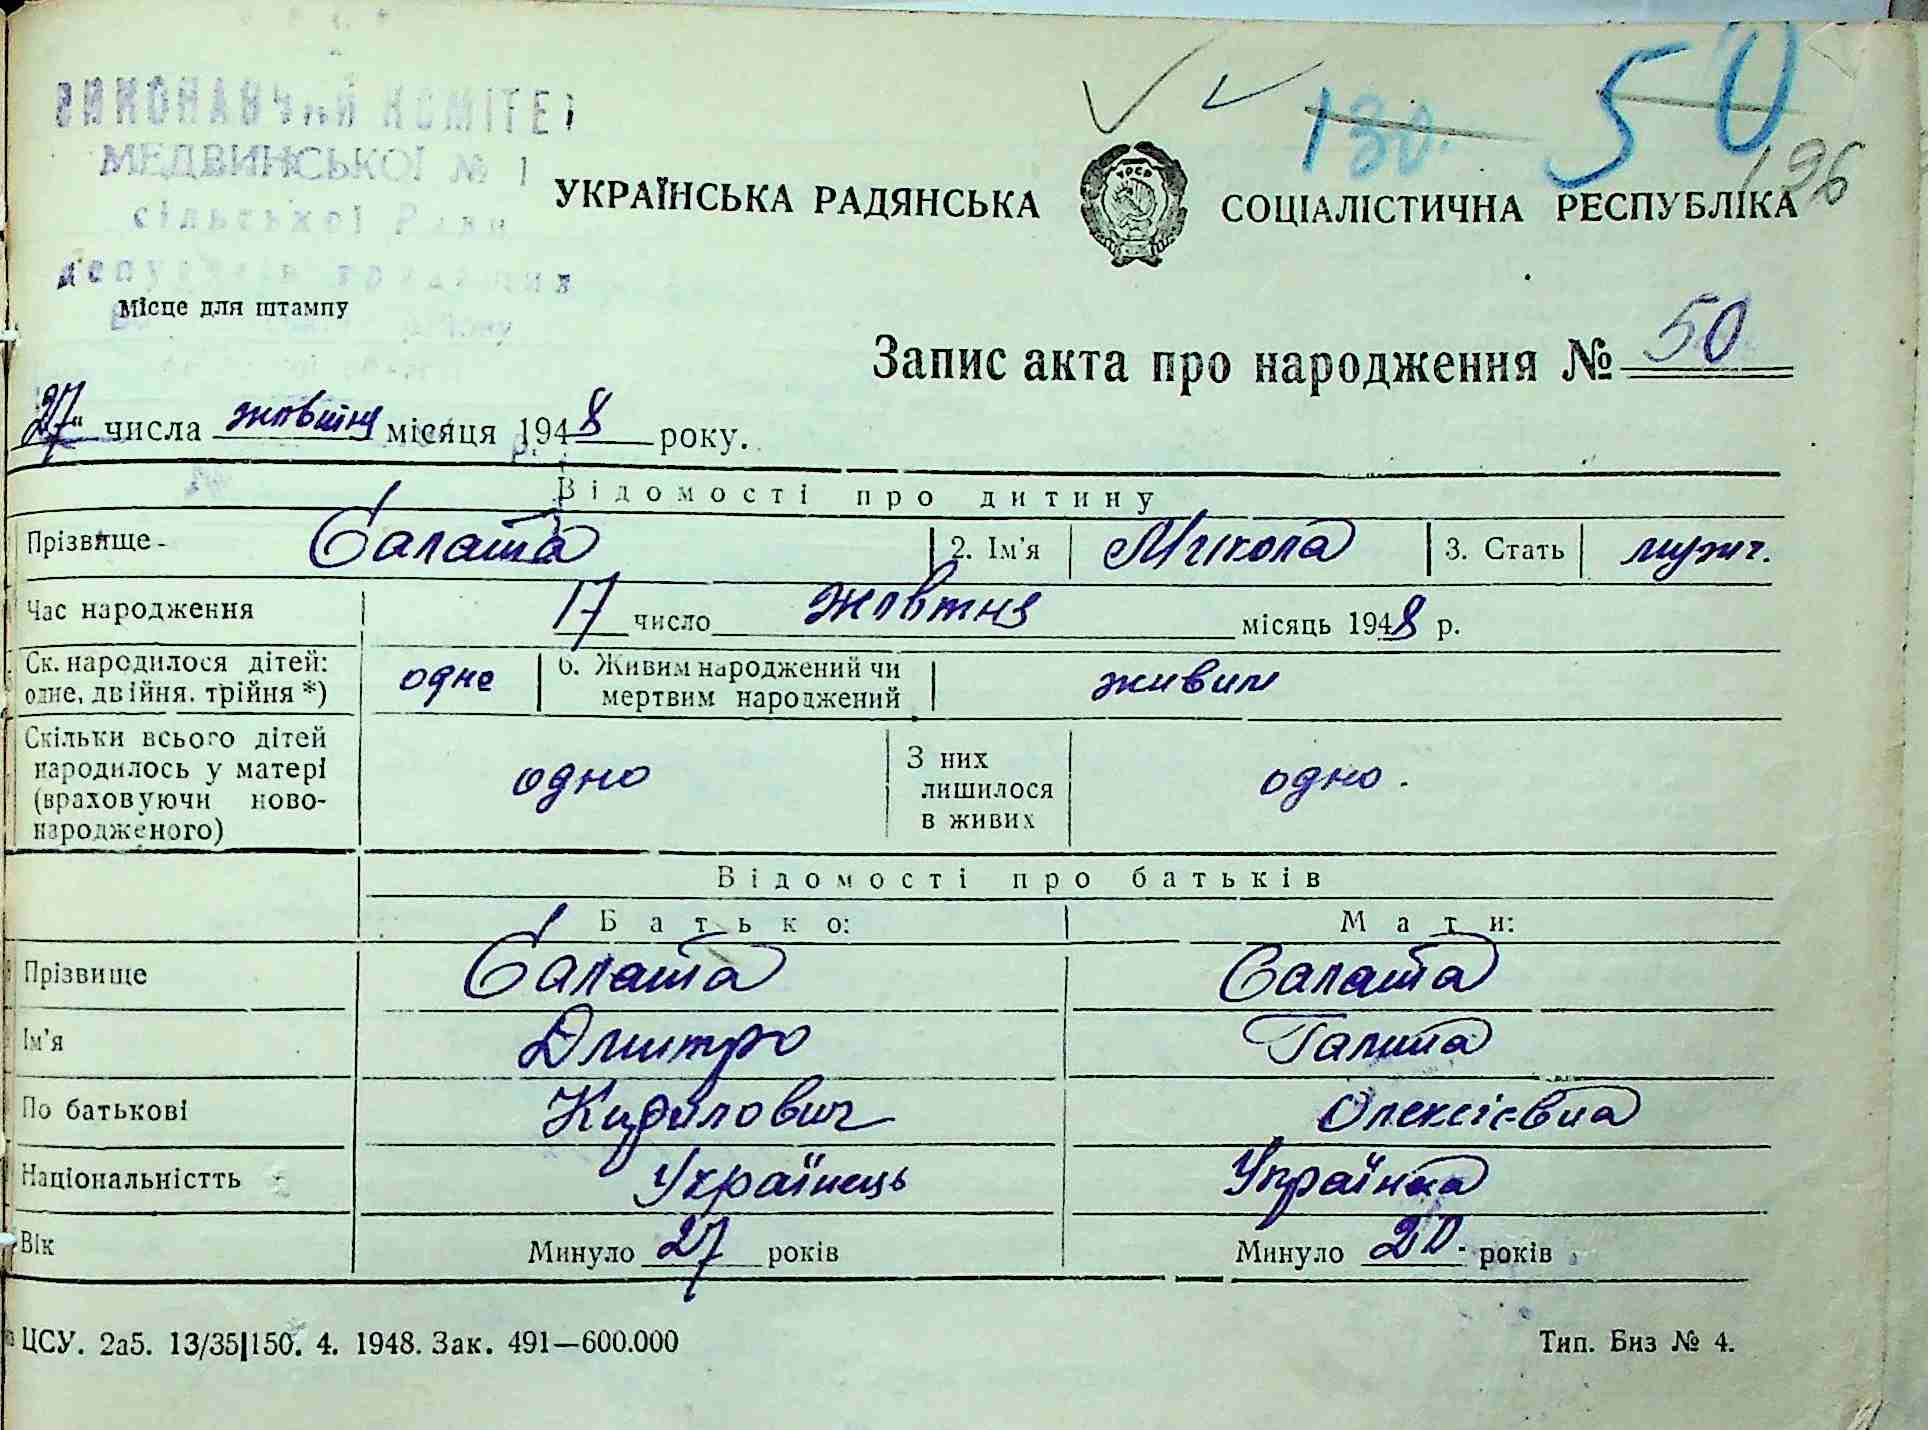 ВИКОНАВЧИЙ КОМІТЕТ
МЕДВИНСЬКОЇ № 1
сільської Ради
депутатів трудящих
130. 50
196
УКРАЇНСЬКА РАДЯНСЬКА СОЦІАЛІСТИЧНА РЕСПУБЛІКА
Місце для штампу
Запис акта про народження № 50
27" числа жовтня місяця 1948 року.
Відомості про дитину
Прізвище Салата 2. Ім'я Микола 3. Стать мужч.
Час народження 17 число жовтня місяць 1948 р.
Ск. народилося дітей: одне, двійня, трійня *) одне 6. Живим народжений чи мертвим народжений живим
Скільки всього дітей народилось у матері (враховуючи ново- народженого) одно З них лишилося в живих одно.
Відомості про батьків
Батько: Мати:
Прізвище Салата Салата
Ім'я Дмитро Галина
По батькові Кирилович Олексієвна
Національністть Українець Українка
Вік Минуло 27 років Минуло 20. років
ЦСУ. 2а5. 13/35|150. 4. 1948. Зак. 491—600.000 Тип. Биз № 4.